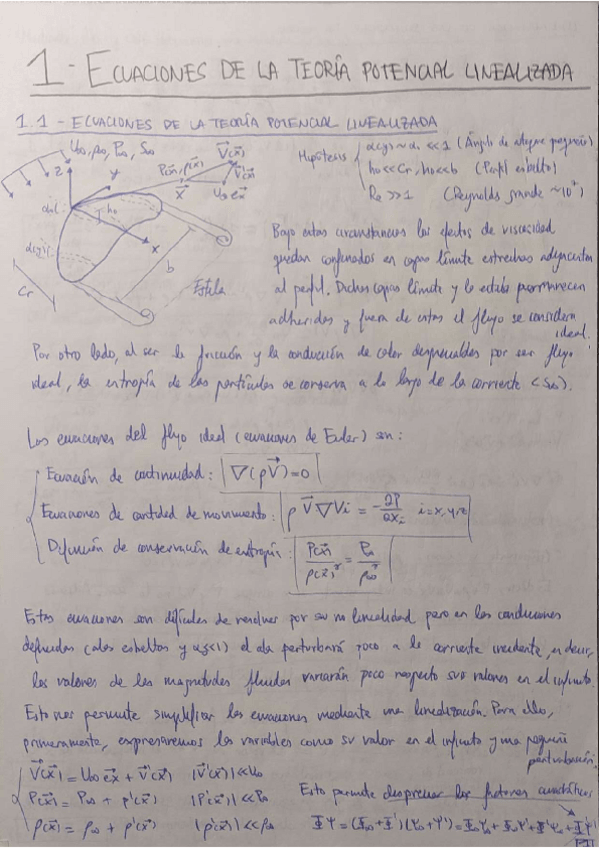 1 - ECUACIONES DE LA TEORÍA POTENCIAL LINEALIZADA
1.1 - ECUACIONES DE LA TEORÍA POTENCIAL LINEALIZADA
U∞, ρ∞, P∞, S∞
P(x⃗), ρ(x⃗)
V⃗(x⃗)
V⃗'(x⃗)
z
y
x⃗
U∞ e⃗x
h₀
x
b
Cr
Estela
Hipótesis
α(y) ~ α₁ << 1 (Ángulo de ataque pequeño)
h₀ << Cr, h₀ << b (Perfil esbelto)
Re >> 1 (Reynolds grande ~10⁷)
Bajo estas circunstancias los efectos de viscosidad
quedan confinados en capas límite estrechas adyacentes
al perfil. Dichas capas límite y la estela permanecen
adheridas y fuera de estas el flujo se considera
ideal.
Por otro lado, al ser la fricción y la conducción de calor despreciables por ser flujo
ideal, la entropía de las partículas se conserva a lo largo de la corriente (S∞).
Las ecuaciones del flujo ideal (ecuaciones de Euler) son:
Ecuación de continuidad: ∇(ρV⃗)=0
Ecuaciones de cantidad de movimiento: ρ V⃗ ∇Vi = -∂P/∂xi i=x,y,z
Definición de conservación de entropía: P(x⃗)/ρ(x⃗)^γ = P∞/ρ∞^γ
Estas ecuaciones son difíciles de resolver por su no linealidad pero en las condiciones
definidas (alas esbeltas y α<<1) el ala perturbará poco a la corriente incidente, es decir,
los valores de las magnitudes fluidas variarán poco respecto sus valores en el infinito.
Esto nos permite simplificar las ecuaciones mediante una linealización. Para ello,
primeramente, expresaremos las variables como su valor en el infinito y una pequeña
perturbación.
V⃗(x⃗) = U∞ e⃗x + V⃗'(x⃗) |V'(x⃗)| << U∞
P(x⃗) = P∞ + p'(x⃗) |P'(x⃗)| << P∞
ρ(x⃗) = ρ∞ + ρ'(x⃗) |ρ'(x⃗)| << ρ∞
Esto permite despreciar los factores cuadráticos
ΦΨ = (Φ∞+Φ')(Ψ∞+Ψ') = Φ∞Ψ∞ + Φ∞Ψ' + Φ'Ψ∞ + Φ'Ψ'